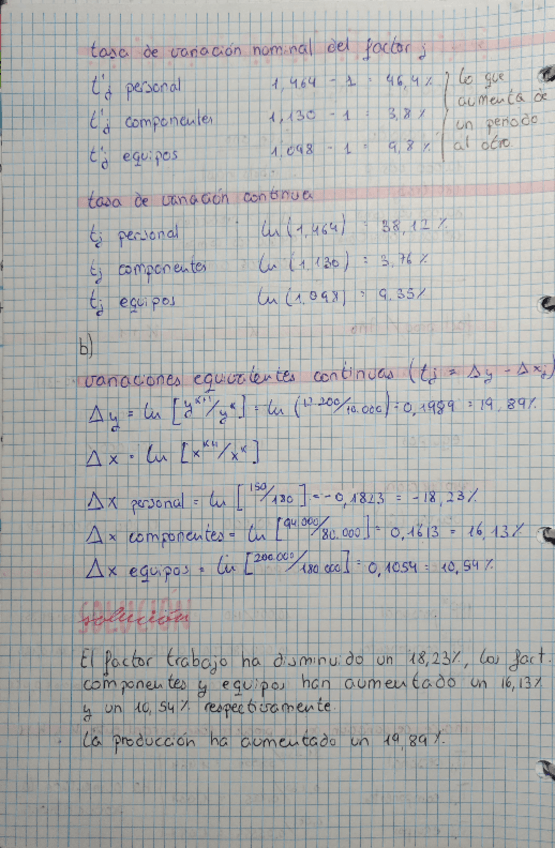 tasa de variación nominal del factor j
t'j personal 1,464 - 1 = 46,4% lo que
t'j componentes 1,130 - 1 = 3,8% aumenta de
un periodo
t'j equipos 1,098 - 1 = 9,8% al otro.
tasa de variación continua
tj personal ln (1,464) = 38,12%
tj componentes ln (1,130) = 3,76%
tj equipos ln (1,098) = 9,35%
b)
variaciones equivalentes continuas (tj = Δy - Δxj)
Δy = ln [y^k+1/y^k] = ln (12.200/10.000) = 0,1989 = 19,89%
Δx = ln [x^k+1/x^k]
Δx personal = ln [150/180] = -0,1823 = -18,23%
Δx componentes = ln [94.000/80.000] = 0,1613 = 16,13%
Δx equipos = ln [200.000/180.000] = 0,1054 = 10,54%
solución
El factor trabajo ha disminuido un 18,23%, los fact.
componentes y equipos han aumentado un 16,13%
y un 10,54% respectivamente.
La producción ha aumentado un 19,89%.